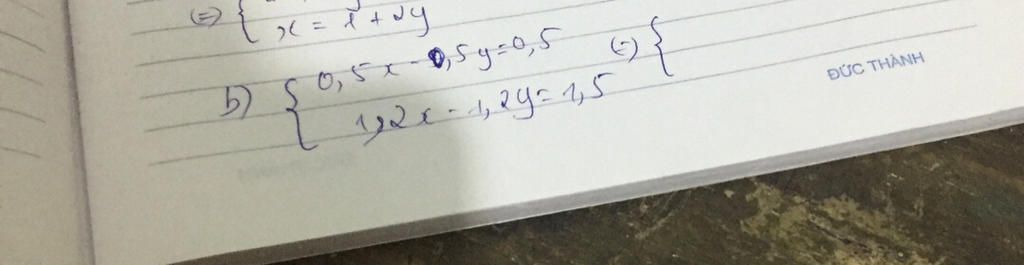 (=) { x = 1 + 2y
b) { 0,5x - 0,5y = 0,5 (=) {
1,2x - 1,2y = 1,5
ĐỨC THÀNH